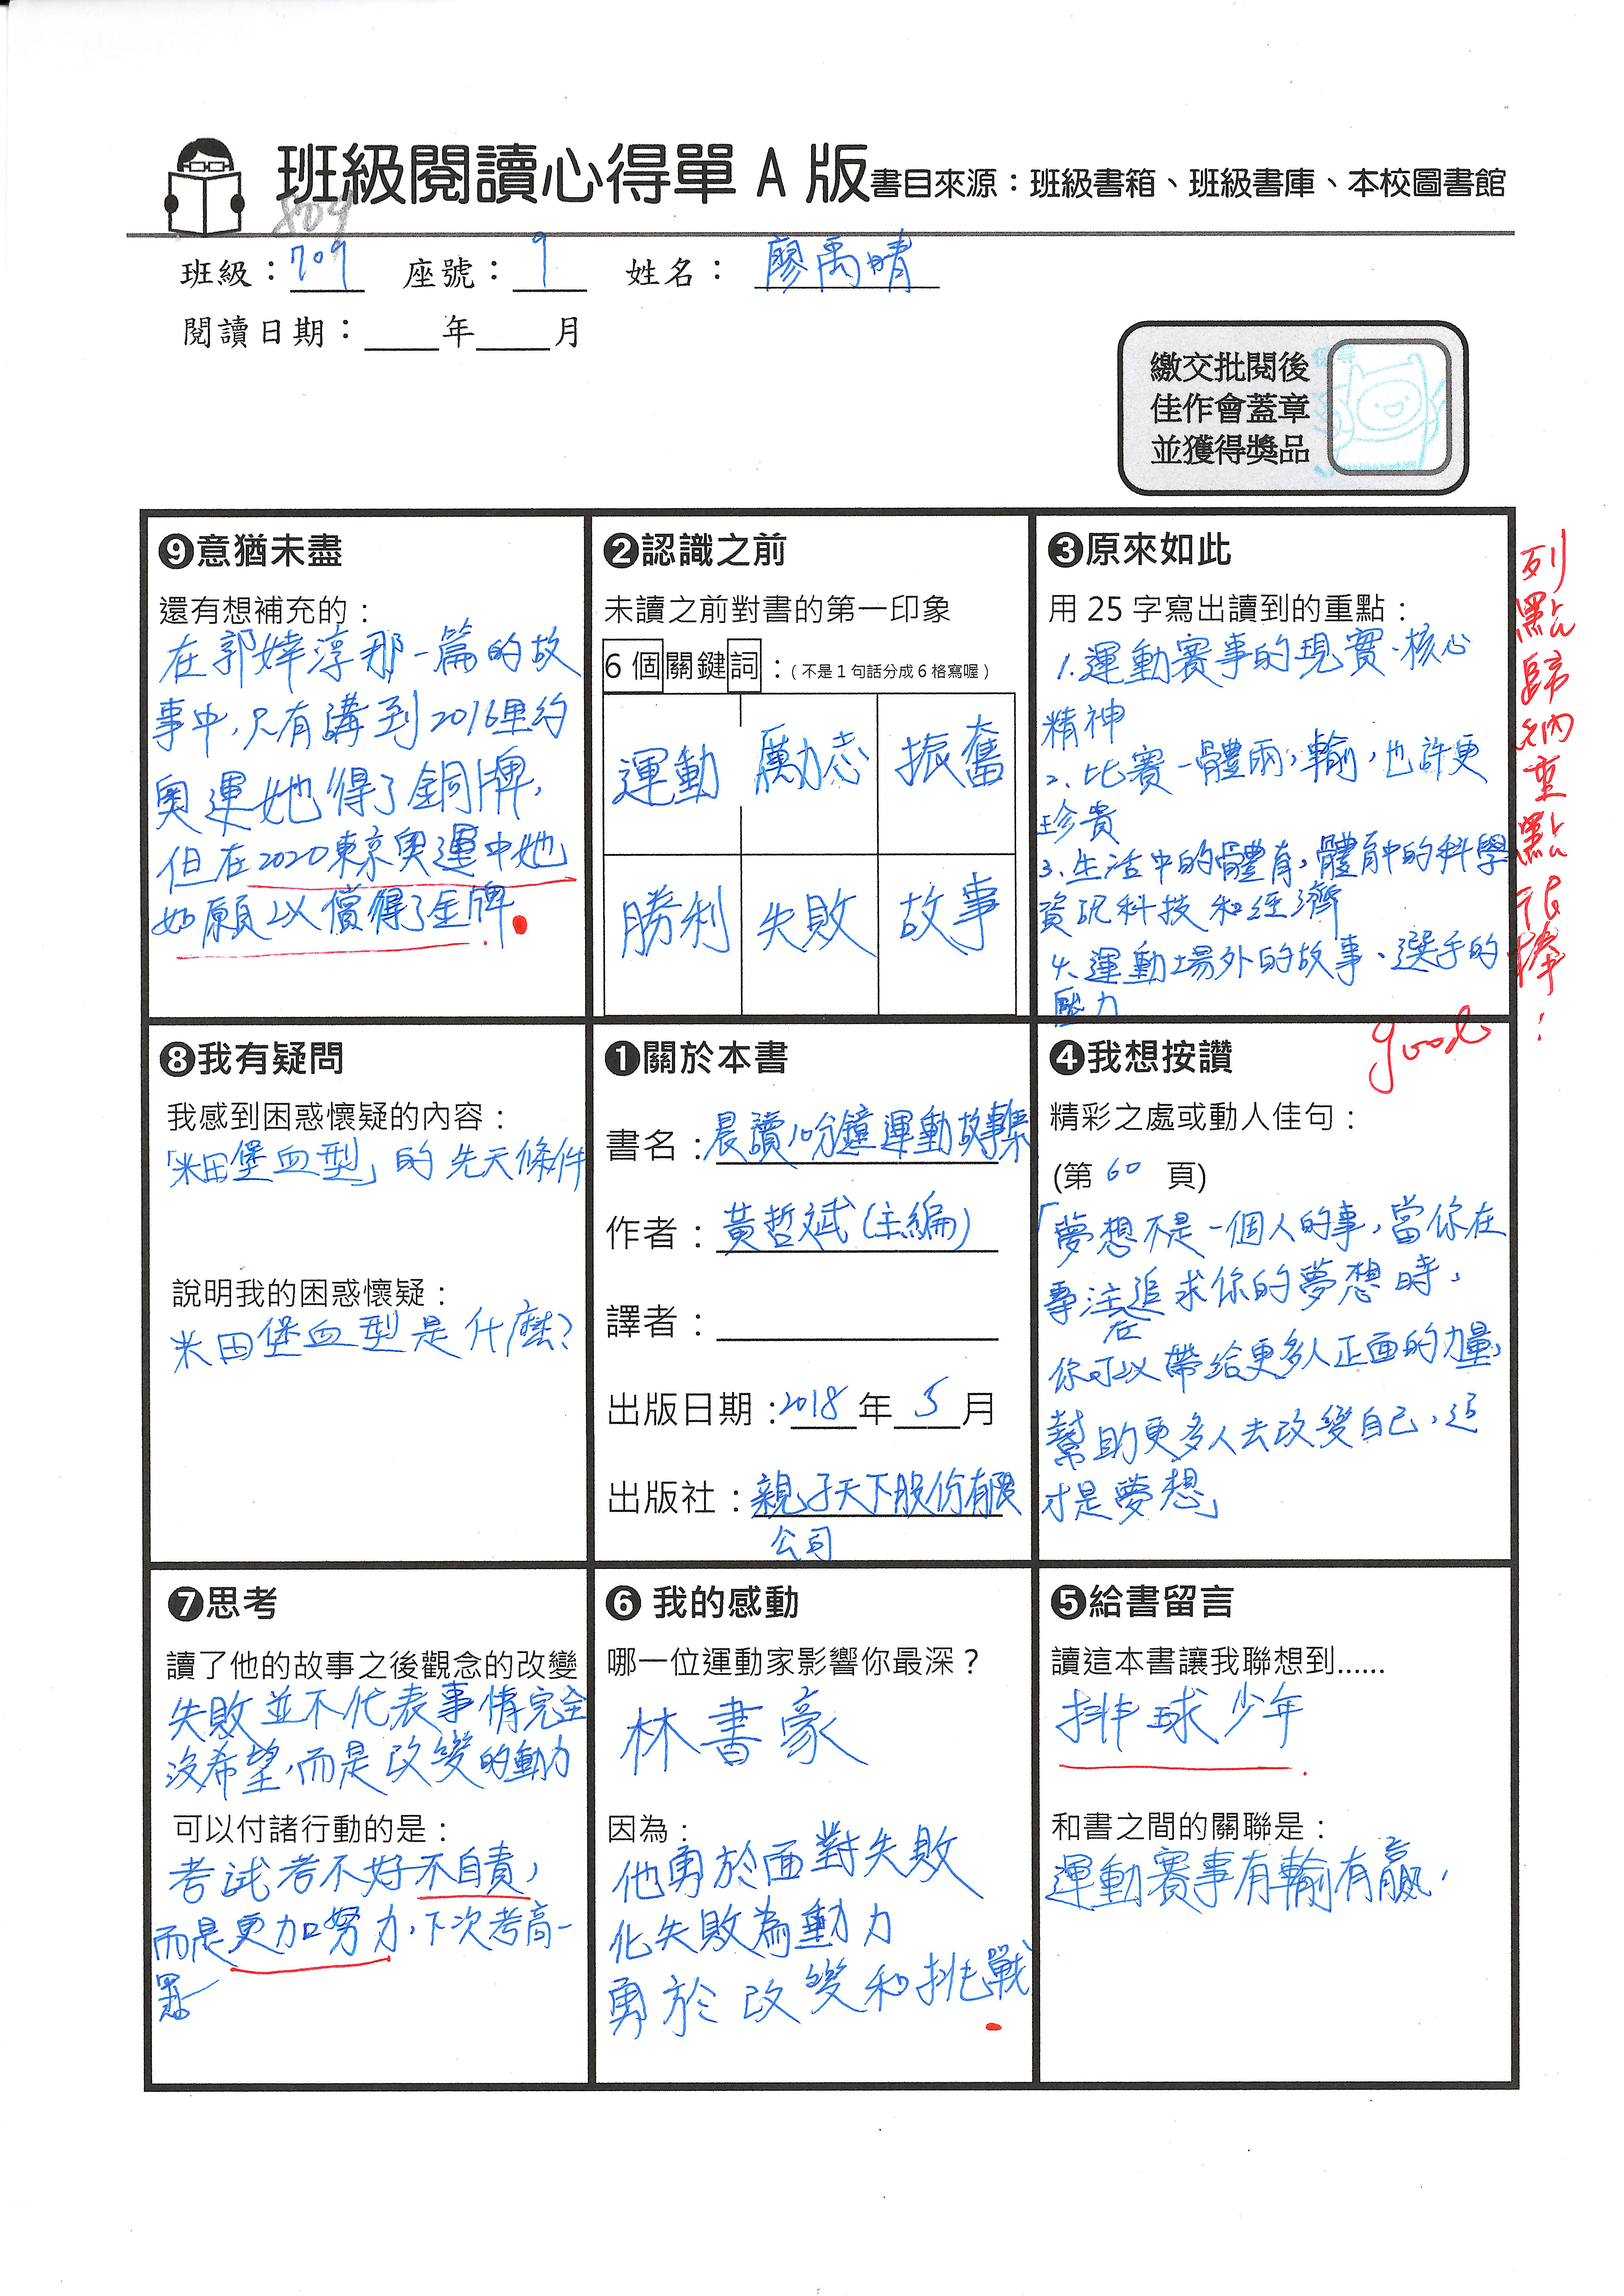 班級閱讀心得單 A 版書目來源：班級書箱、班級書庫、本校圖書館
809
班級：709 座號：9 姓名：廖禹晴
閱讀日期：____年____月
繳交批閱後
佳作會蓋章
並獲得獎品
❾意猶未盡
還有想補充的：
在郭婞淳那一篇的故
事中,只有講到2016里約
奧運她得了銅牌,
但在2020東京奧運中她
如願以償得了金牌
❷認識之前
未讀之前對書的第一印象
6個關鍵詞：(不是1句話分成6格寫喔)
運動 勵志 振奮
勝利 失敗 故事
❸原來如此
用 25 字寫出讀到的重點：
1.運動賽事的現實、核心
精神
2.比賽一體兩,輸,也許更
珍貴
3.生活中的體育,體育中的科學
資訊科技和經濟
4.運動場外的故事、選手的
壓力
列點歸納重點很棒！
good
❽我有疑問
我感到困惑懷疑的內容：
「米田堡血型」的先天條件
說明我的困惑懷疑：
米田堡血型是什麼?
❶關於本書
書名：晨讀10分鐘運動故事集
作者：黃哲斌(主編)
譯者：
出版日期：2018年5月
出版社：親子天下股份有限
公司
❹我想按讚
精彩之處或動人佳句：
(第 60 頁)
「夢想不是一個人的事,當你在
專注在追求你的夢想時,
你可以帶給更多人正面的力量,
幫助更多人去改變自己,這
才是夢想」
❼思考
讀了他的故事之後觀念的改變
失敗並不代表事情完全
沒希望,而是改變的動力
可以付諸行動的是：
考試考不好不自責,
而是更加努力,下次考高一
點
❻ 我的感動
哪一位運動家影響你最深？
林書豪
因為：
他勇於面對失敗
化失敗為動力
勇於改變和挑戰
❺給書留言
讀這本書讓我聯想到......
排球少年
和書之間的關聯是：
運動賽事有輸有贏,